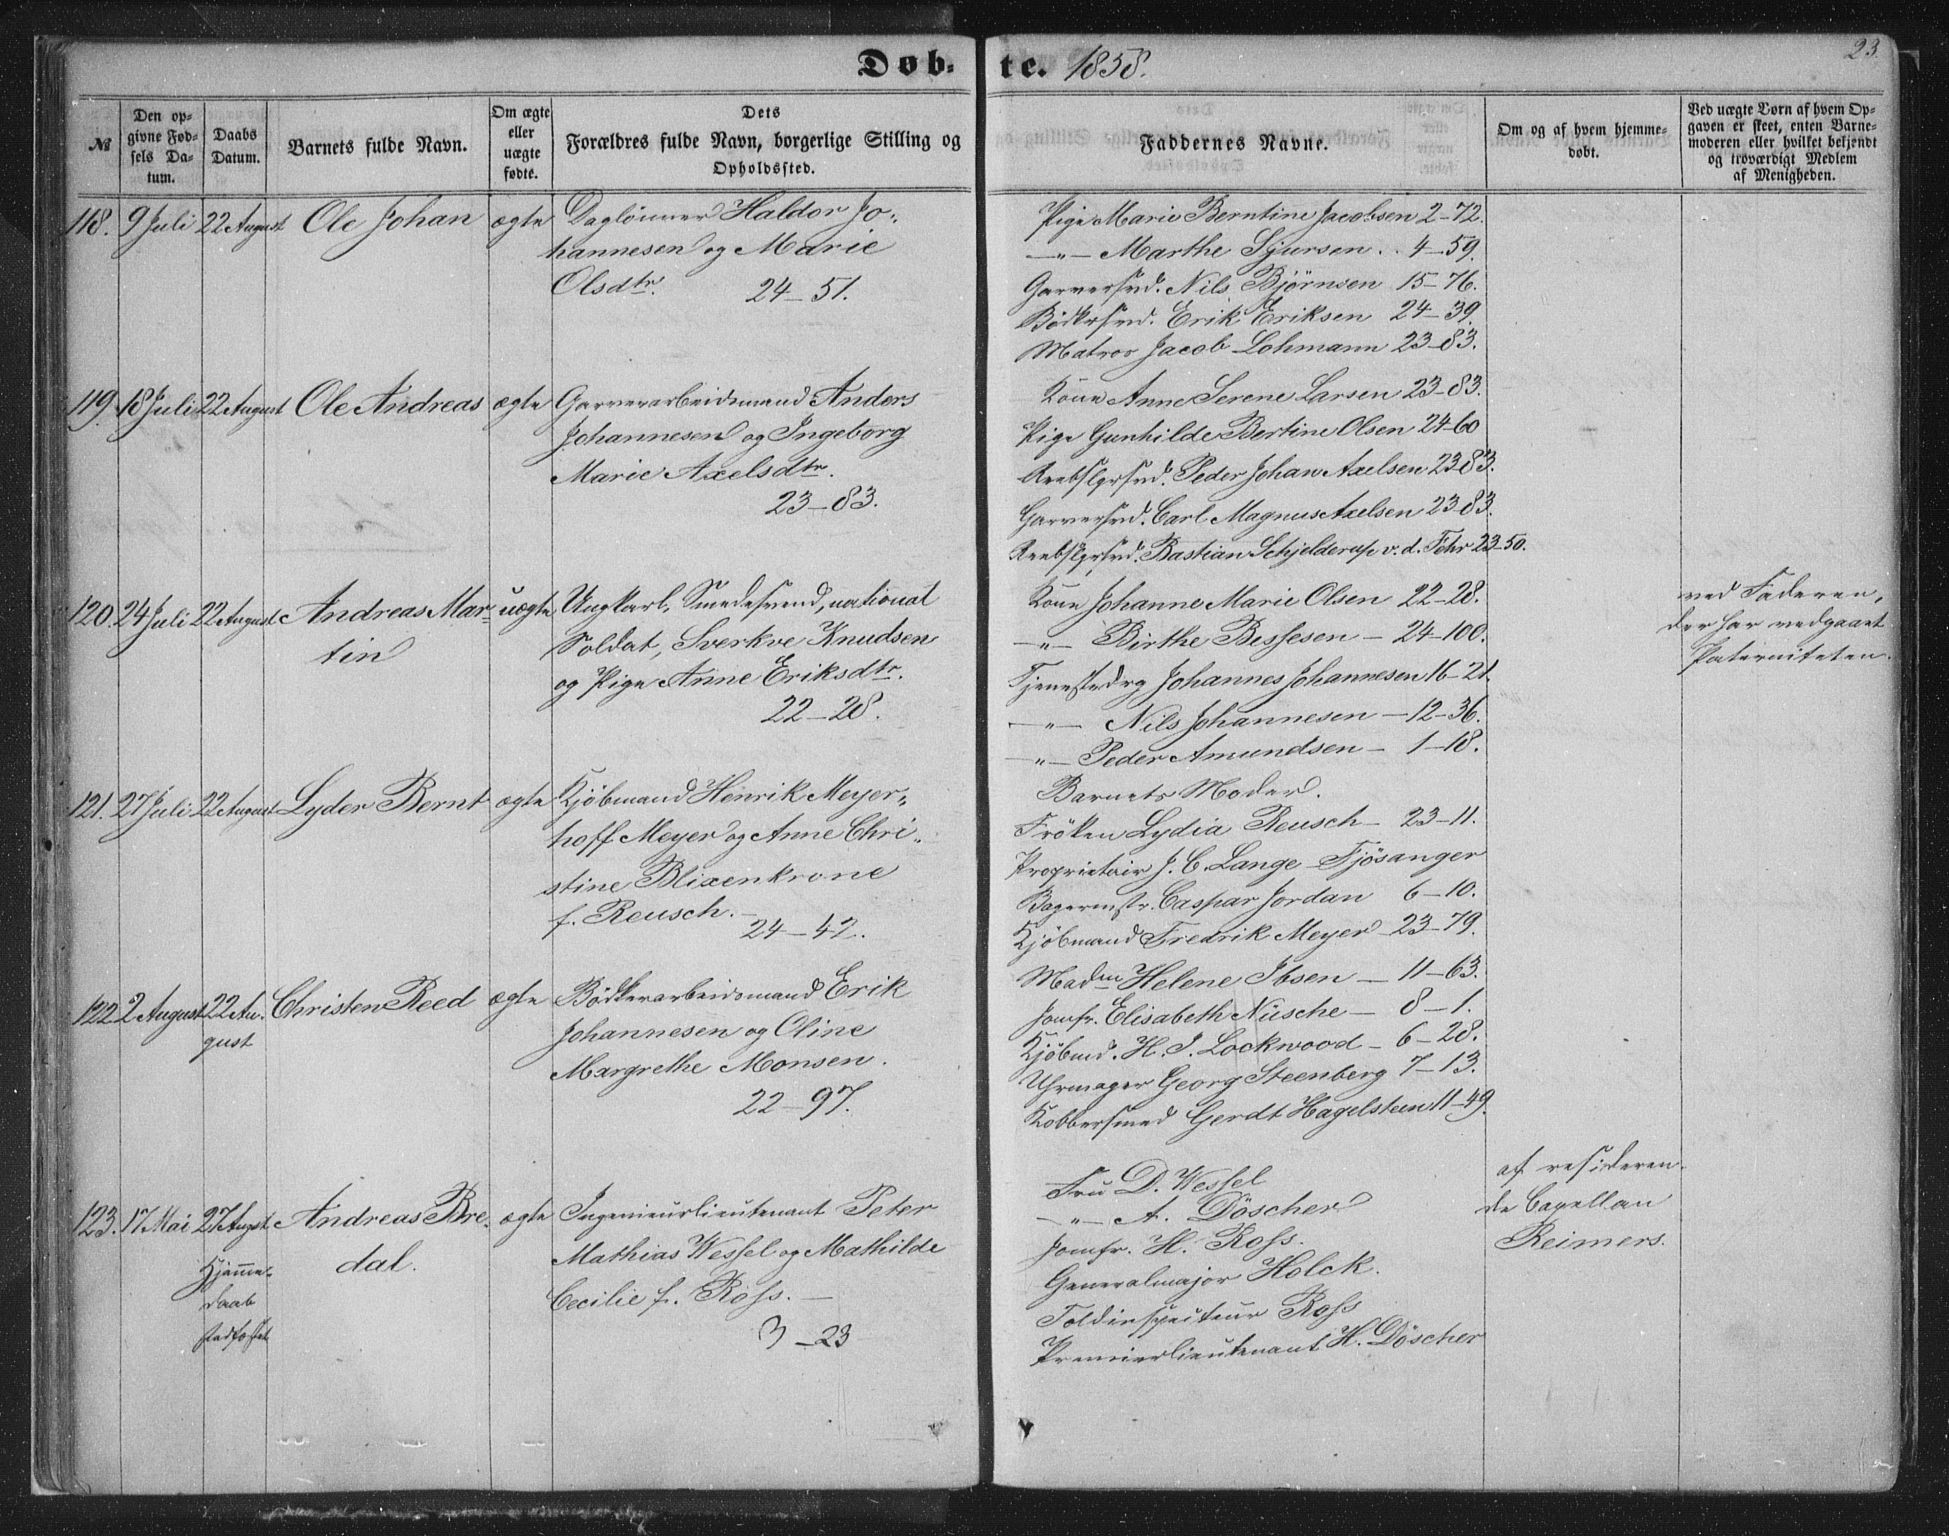 Døb-
te. 1858.
23.
№
Den op-
givne Fød-
sels Da-
tum.
Daabs
Datum.
Barnets fulde Navn.
Om ægte
eller
uægte
fødte.
Dets
Forældres fulde Navn, borgerlige Stilling og
Opholdssted.
Faddernes Navne.
Om og af hvem hjemme-
døbt.
Ved uægte Børn af hvem Op-
gaven er skeet, enten Barne-
moderen eller hvilket bekjendt
og troværdigt Medlem
af Menigheden.
118. 9 Juli 22 August Ole Johan ægte Daglönner Haldor Jo-
hannesen og Marie
Olsdtr. 24-51.
Pige Marie Berntine Jacobsen 2-72.
—"— Marthe Sjursen . . 4-59.
Garversvd. Nils Bjørnsen 15-76.
Bödkrsvd. Erik Eriksen 24-39.
Matros Jacob Lohmann 23-83.
119. 18 Juli 22 August Ole Andreas ægte Garverarbeidsmand Anders
Johannesen og Ingeborg
Marie Axelsdtr.
23-83.
Kone Anne Serene Larsen 23-83.
Pige Gunhilde Bertine Olsen 24-60
Reebslgrsvd. Peder Johan Axelsen 23-83.
Garversvd. Carl Magnus Axelsen 23-83.
Reebslgrsvd. Bastian Schjelderup v. d. Fehr 23-50.
120. 24 Juli 22 August Andreas Mar- uægte Ungkarl, Smedesvend, national
tin
Soldat, Sverkve Knudsen
og Pige Anne Eriksdtr.
22-28.
Kone Johanne Marie Olsen 22-28.
—"— Birthe Bessesen — 24-100.
Tjenestedrg Johannes Johannesen 16-21.
—"— Nils Johannesen — 12-36.
—"— Peder Amundsen — 1-18.
ved Faderen,
der har vedgaaet
Paterniteten.
121. 27 Juli 22 August Lyder Bernt ægte Kjöbmand Henrik Meyer-
hoff Meyer og Anne Chri-
stine Blixenkrone
f. Reusch. —
24-42.
Barnets Moder.
Fröken Lydia Reusch — 23-11.
Proprietair J. C. Lange Fjösanger
Bagermstr. Caspar Jordan 6-10.
Kjöbmand Fredrik Meyer — 23-79.
122. 2 August 22 Au- Christen Reed ægte Bödkerarbeidsmand Erik
gust
Johannesen og Oline
Margrethe Monsen.
22-97.
Madm Helene Ibsen — 11-63.
Jomfr. Elisabeth Nüsche — 8-1.
Kjöbmd. H. J. Lockwood — 6-28.
Uhrmager Georg Steenberg 7-13.
Kobbersmed Gerdt Hagelsteen 11-49.
123. 17 Mai 27 Augst. Andreas Bre- ægte Ingenieurlieutenant Peter
Hjemme-
daab
stadfæstet
dal.
Mathias Wessel og Mathilde
Cecilie f. Ross. —
3-23
Fru D. Wessel
—"— A. Döscher
Jomfr. H. Ross.
Generalmajor Holck.
Toldinspecteur Ross
Premierlieutenant H. Döscher
af residеren-
de Capellan
Reimers.